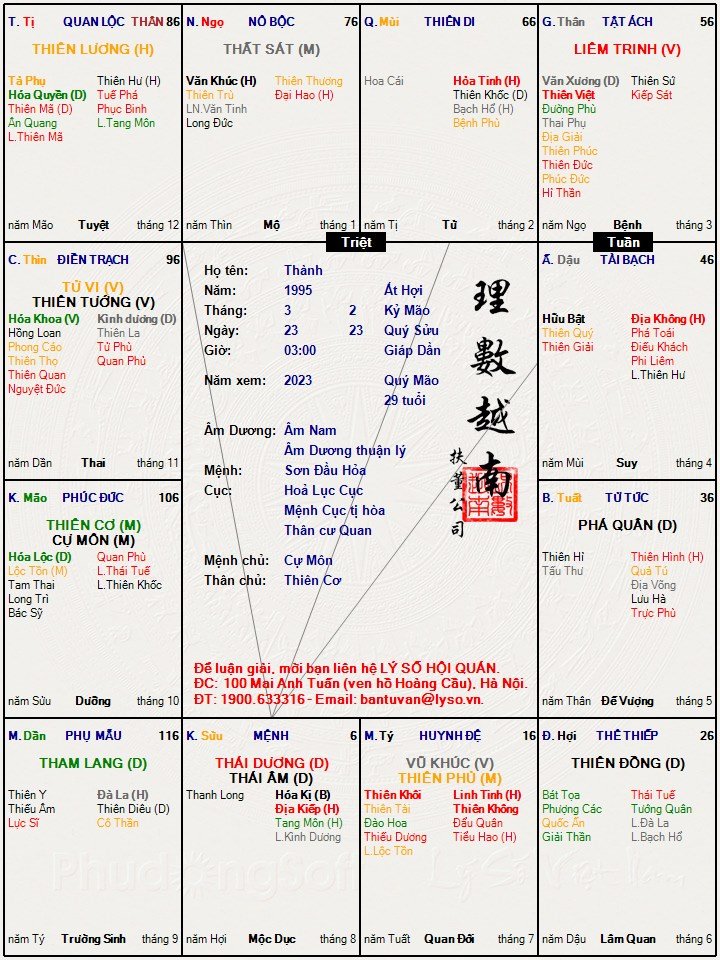 T. Tị QUAN LỘC THÂN 86
THIÊN LƯƠNG (H)
Tả Phụ Thiên Hư (H)
Hóa Quyền (D) Tuế Phá
Thiên Mã (D) Phục Binh
Ân Quang L.Tang Môn
L.Thiên Mã
năm Mão Tuyệt tháng 12
N. Ngọ NÔ BỘC 76
THẤT SÁT (M)
Văn Khúc (H) Thiên Thương
Thiên Trù Đại Hao (H)
LN.Văn Tinh
Long Đức
năm Thìn Mộ tháng 1
Q. Mùi THIÊN DI 66
Hoa Cái Hỏa Tinh (H)
Thiên Khốc (D)
Bạch Hổ (H)
Bệnh Phù
năm Tị Tử tháng 2
G. Thân TẬT ÁCH 56
LIÊM TRINH (V)
Văn Xương (D) Thiên Sứ
Thiên Việt Kiếp Sát
Đường Phù
Thai Phụ
Địa Giải
Thiên Phúc
Thiên Đức
Phúc Đức
Hỉ Thần
năm Ngọ Bệnh tháng 3
Triệt
Tuần
C. Thìn ĐIỀN TRẠCH 96
TỬ VI (V)
THIÊN TƯỚNG (V)
Hóa Khoa (V) Kình dương (D)
Hồng Loan Thiên La
Phong Cáo Tử Phù
Thiên Thọ Quan Phủ
Thiên Quan
Nguyệt Đức
năm Dần Thai tháng 11
Họ tên: Thành
Năm: 1995 Ất Hợi
Tháng: 3 2 Kỷ Mão
Ngày: 23 23 Quý Sửu
Giờ: 03:00 Giáp Dần
Năm xem: 2023 Quý Mão
29 tuổi
Âm Dương: Âm Nam
Âm Dương thuận lý
Mệnh: Sơn Đầu Hỏa
Cục: Hoả Lục Cục
Mệnh Cục tị hòa
Thân cư Quan
Mệnh chủ: Cự Môn
Thân chủ: Thiên Cơ
理數越南
扶董公司
Để luận giải, mời bạn liên hệ LÝ SỐ HỘI QUÁN.
ĐC: 100 Mai Anh Tuấn (ven hồ Hoàng Cầu), Hà Nội.
ĐT: 1900.633316 - Email: bantuvan@lyso.vn.
Ấ. Dậu TÀI BẠCH 46
Hữu Bật Địa Không (H)
Thiên Quý Phá Toái
Thiên Giải Điếu Khách
Phi Liêm
L.Thiên Hư
năm Mùi Suy tháng 4
K. Mão PHÚC ĐỨC 106
THIÊN CƠ (M)
CỰ MÔN (M)
Hóa Lộc (D) Quan Phù
Lộc Tồn (M) L.Thái Tuế
Tam Thai L.Thiên Khốc
Long Trì
Bác Sỹ
năm Sửu Dưỡng tháng 10
B. Tuất TỬ TỨC 36
PHÁ QUÂN (D)
Thiên Hỉ Thiên Hình (H)
Tấu Thư Quả Tú
Địa Võng
Lưu Hà
Trực Phù
năm Thân Đế Vượng tháng 5
M. Dần PHỤ MẪU 116
THAM LANG (D)
Thiên Y Đà La (H)
Thiếu Âm Thiên Diêu (D)
Lực Sĩ Cô Thần
năm Tý Trường Sinh tháng 9
K. Sửu MỆNH 6
THÁI DƯƠNG (D)
THÁI ÂM (D)
Thanh Long Hóa Kị (B)
Địa Kiếp (H)
Tang Môn (H)
L.Kình Dương
năm Hợi Mộc Dục tháng 8
M. Tý HUYNH ĐỆ 16
VŨ KHÚC (V)
THIÊN PHỦ (M)
Thiên Khôi Linh Tinh (H)
Thiên Tài Thiên Không
Đào Hoa Đẩu Quân
Thiếu Dương Tiểu Hao (H)
L.Lộc Tồn
năm Tuất Quan Đới tháng 7
Đ. Hợi THÊ THIẾP 26
THIÊN ĐỒNG (D)
Bát Tọa Thái Tuế
Phượng Các Tướng Quân
Quốc Ấn L.Đà La
Giải Thần L.Bạch Hổ
năm Dậu Lâm Quan tháng 6
PhudongSoft Lý Số Việt Nam